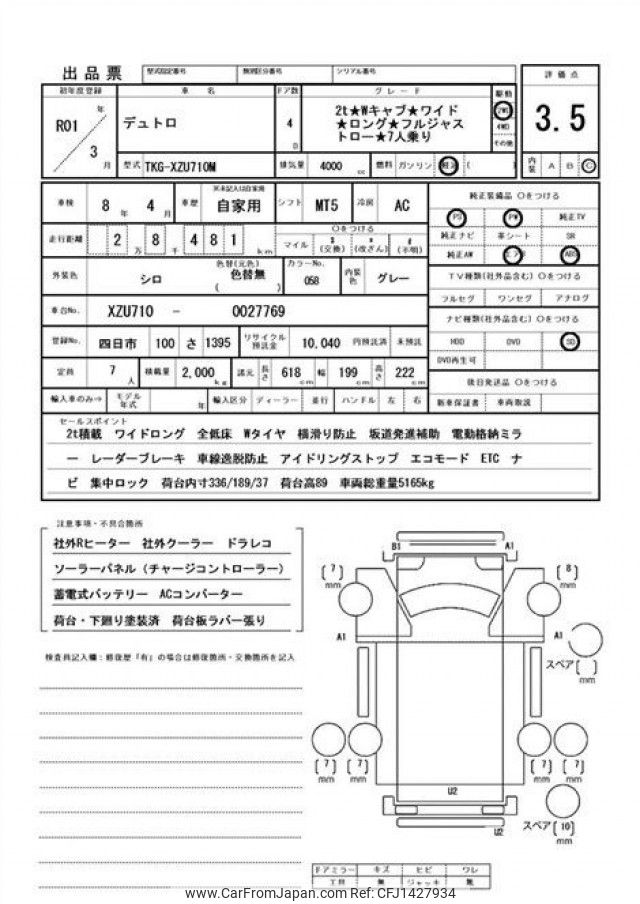 出品票 型式指定番号 類別区分番号 シリアル番号
評価点
3.5
初年度登録 車名 ドア数 グレード 駆動
R01 年 3 月
デュトロ
4 D
2t★Wキャブ★ワイド
★ロング★フルジャス
トロー★7人乗り
2WD
4WD
その他
型式 TKG-XZU710M 排気量 4000 cc 燃料 ガソリン 軽油 ( )
内装 A B C
車検 8 年 4 月 車歴 ※未記入は自家用 自家用 シフト MT5 冷房 AC
純正装備品 ○をつける
PS PW 純正TV
純正ナビ 革シート SR
純正AW エアB ABS
走行距離 2 万 8 千 4 8 1 km
○をつける
マイル $ (交換) * (改ざん) # (不明)
外装色 シロ 色替(元色) 色替無 ( ) カラーNo. 058 内装色 グレー
TV種類(社外品含む) ○をつける
フルセグ ワンセグ アナログ
車台No. XZU710 - 0027769
ナビ種類(社外品含む) ○をつける
HDD DVD SD
DVD再生可
登録No. 四日市 100 さ 1395 リサイクル預託金 10,040 円預託済 未預託
定員 7 人 積載量 2,000 kg 諸元 長さ 618 cm 幅 199 cm 高さ 222 cm
後日発送品 ○をつける
新車保証書 車両取説
輸入車のみ⇒ モデル年式 年 輸入区分 ディーラー 並行 ハンドル 左 右
セールスポイント
2t積載 ワイドロング 全低床 Wタイヤ 横滑り防止 坂道発進補助 電動格納ミラ
ー レーダーブレーキ 車線逸脱防止 アイドリングストップ エコモード ETC ナ
ビ 集中ロック 荷台内寸336/189/37 荷台高89 車両総重量5165kg
注意事項・不具合箇所
社外Rヒーター 社外クーラー ドラレコ
ソーラーパネル（チャージコントローラー）
蓄電式バッテリー ACコンバーター
荷台・下廻り塗装済 荷台板ラバー張り
検査員記入欄：修復歴「有」の場合は修復箇所・交換箇所を記入
B1 A1
[7] mm [8] mm
A1 A1
スペア[ ] mm
[7] mm [7] mm [7] mm [7] mm
U2
U2
スペア[10] mm
ドアミラー キズ ヒビ ワレ
工具 無 ジャッキ 無
www.CarFromJapan.com Ref No. CFJ1427934